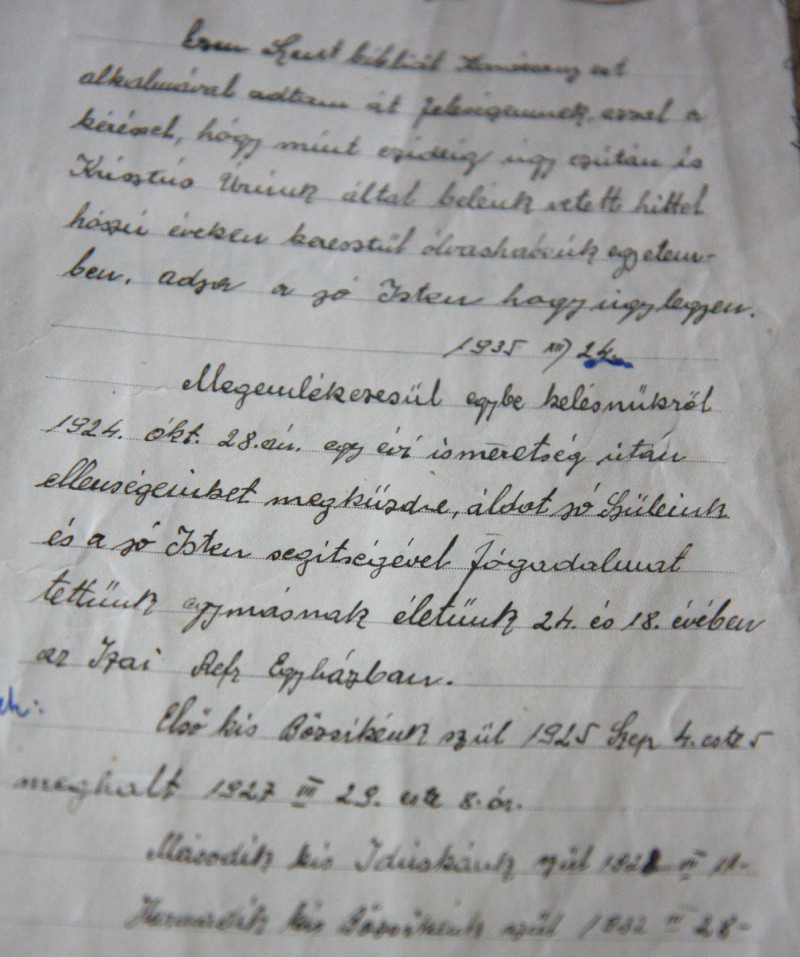 Ezen Szent bibliát Karácsony est
alkalmával adtam át feleségemnek, ezzel a
kéréssel, hógy mint eziddig úgy ezútán is
Krisztús Urúnk által belénk vetett hittel
hósszú éveken keresstül ólvashassúk egyetem-
ben, adja a jó Isten hogy úgy legyen.
1935 XII) 24.
Megemlékezésül egybe kelésnükről
1924. ókt. 28.án. egy évi ismeretség útán
ellenségeinket megküzdve, áldot jó Szüleink
és a jó Isten segitségével fógadalmat
tettünk egymásnak életünk 24. és 18. évében
az Izai Ref Egyházban.
Első kis Bözsikénk szül 1925 Szep 4. este 5
meghalt 1927 III 29. este 8. ór.
Második kis Idúskánk szül 1928 III 11-
Harmadik kis Bözsikénk szül 1932 III 28-